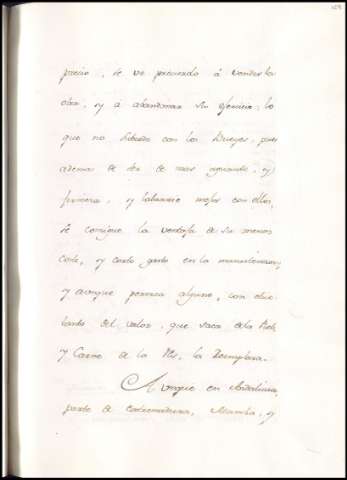 precio, se ve precisado á venderla
ó á abandonar su exercicio: lo
que no sucede con los Bueyes, pues
ademas de ser de mas aguante, y
firmeza, y labrarse mejor con ellos,
se consigue la ventaja de su menos
coste, y corto gasto en la manutencion,
y aunque perezca alguno, con el
tanto del valor, que saca de la Piel,
y Carne de la Res, la Reemplaza.
Aunque en Andalucia,
parte de Extremadura, Mancha, y